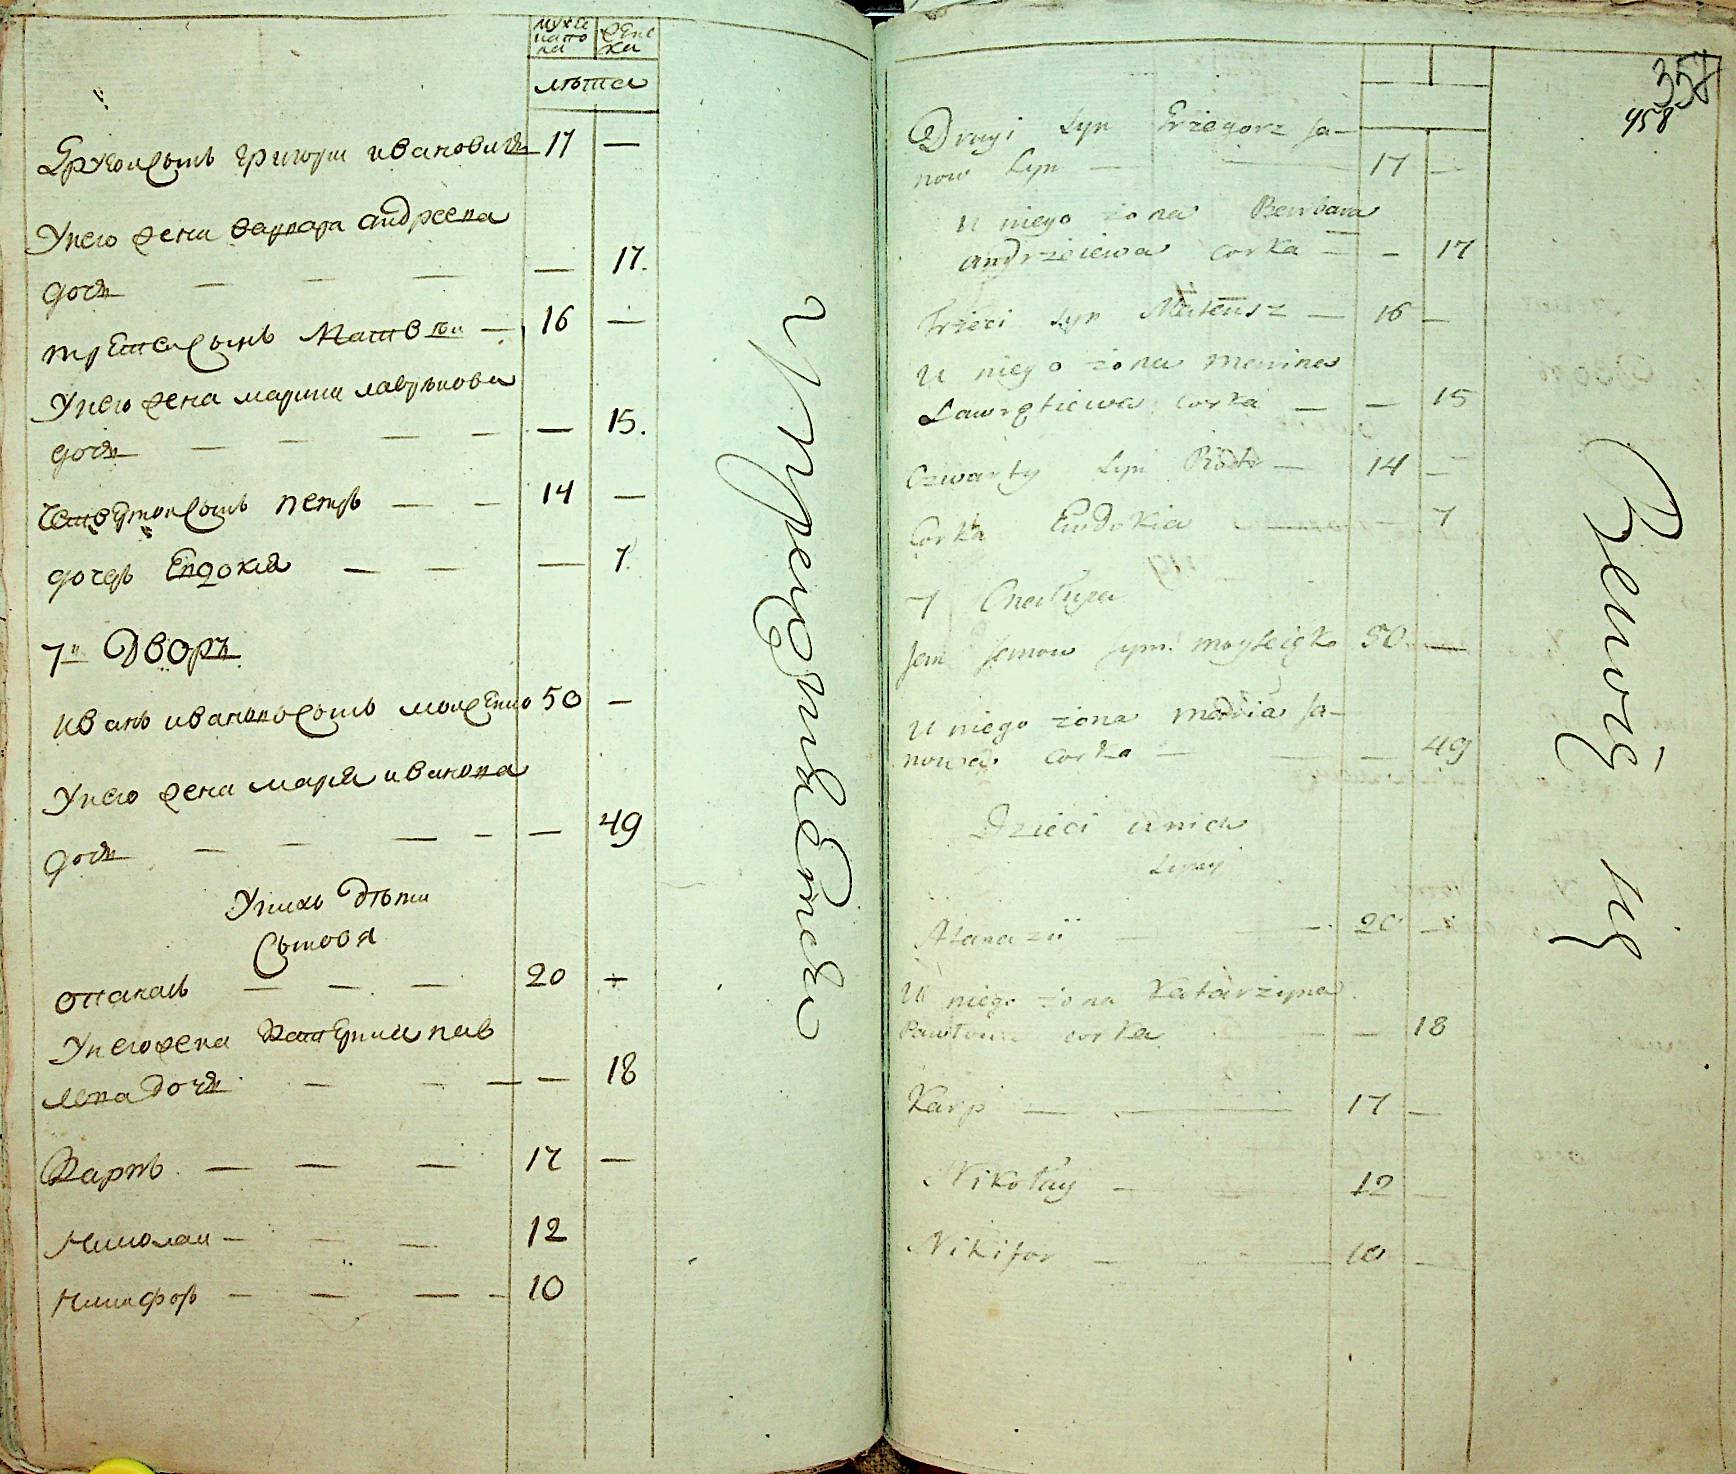 мужеска
пола
женска
лѣта
Другои сынъ григори иванович 17 —
У него жена варвара андреева
дочь — — — — 17.
третеи сынъ Матвѣи — 16 —
У него жена марина лавренова
дочь — — — — — 15.
Четвертои сынъ петръ — — 14 —
дочерь Евдокия — — — 7.
7й Дворъ
иванъ ивановъ сынъ моисенко 50 —
У него жена мария иванова
дочь — — — — — 49
У нихъ дѣти
Сыновя
Опанасъ — — — 20 —
У него жена Катерина пав
лова дочь — — — — 18
Карпъ — — — 17 —
Николаи — — — 12
Никифоръ — — — — 10
357
458
Drugi Syn Grzegorz Ja-
now Syn — — 17 —
U niego żona Barbara
Andrzeiewa corka — — 17
Trzeci Syn Mateusz — 16 —
U niego żona Maryna
Lawrętiewa corka — — 15
Czwarty Syn Piotr — 14 —
Corka Ewdokia — — 7
7 Chałupa
Jan Janow syn Moyseięko 50 —
U niego żona Maria Ja-
nowa corka — — — 49
Dzieci u nich
Syny
Atanazii — — 20 —
U niego żona Katarzyna
Pawłowa corka — — 18
Karp — — 17 —
Nikołay — — 12 —
Nikifor — — 10 —